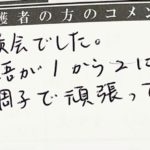 護者の方のコメン
会でした。
語が1から2に
調子で頑張って